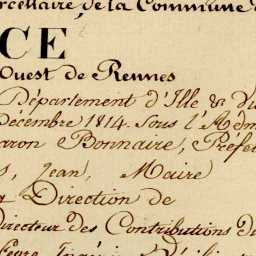 rcellaire, de la Commune
CE
Ouest de Rennes
Département d'Ille & Vi
Décembre 1814. Sous l'Adm
aron Bonnaire, Préfe
s, Jean, Maire
a Direction de
Directeur des Contributions d